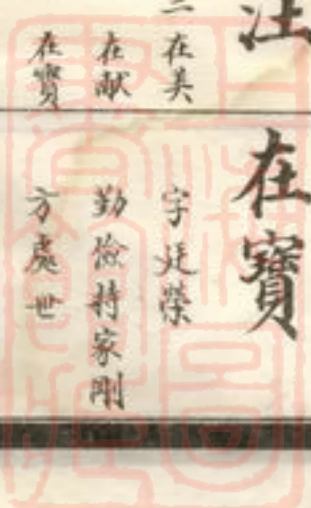 在美
在献
在寶
在寶
字廷榮
勤儉持家剛
方處世